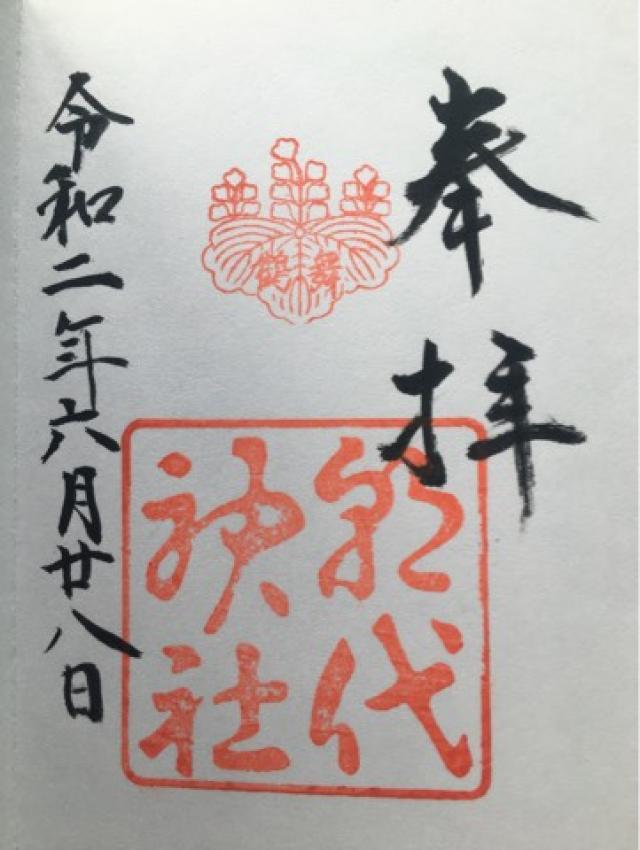 奉拝
舞鶴
朝代
神社
令和二年六月廿八日